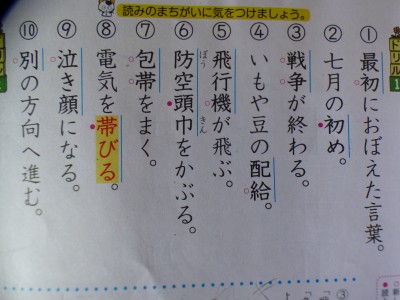 読みのまちがいに気をつけましょう。
ドリル1
① 最初におぼえた言葉。
② 七月の初め。
③ 戦争が終わる。
④ いもや豆の配給。
⑤ 飛行機が飛ぶ。
⑥ 防空頭巾をかぶる。
ぼう きん
⑦ 包帯をまく。
⑧ 電気を帯びる。
⑨ 泣き顔になる。
⑩ 別の方向へ進む。
ドリル